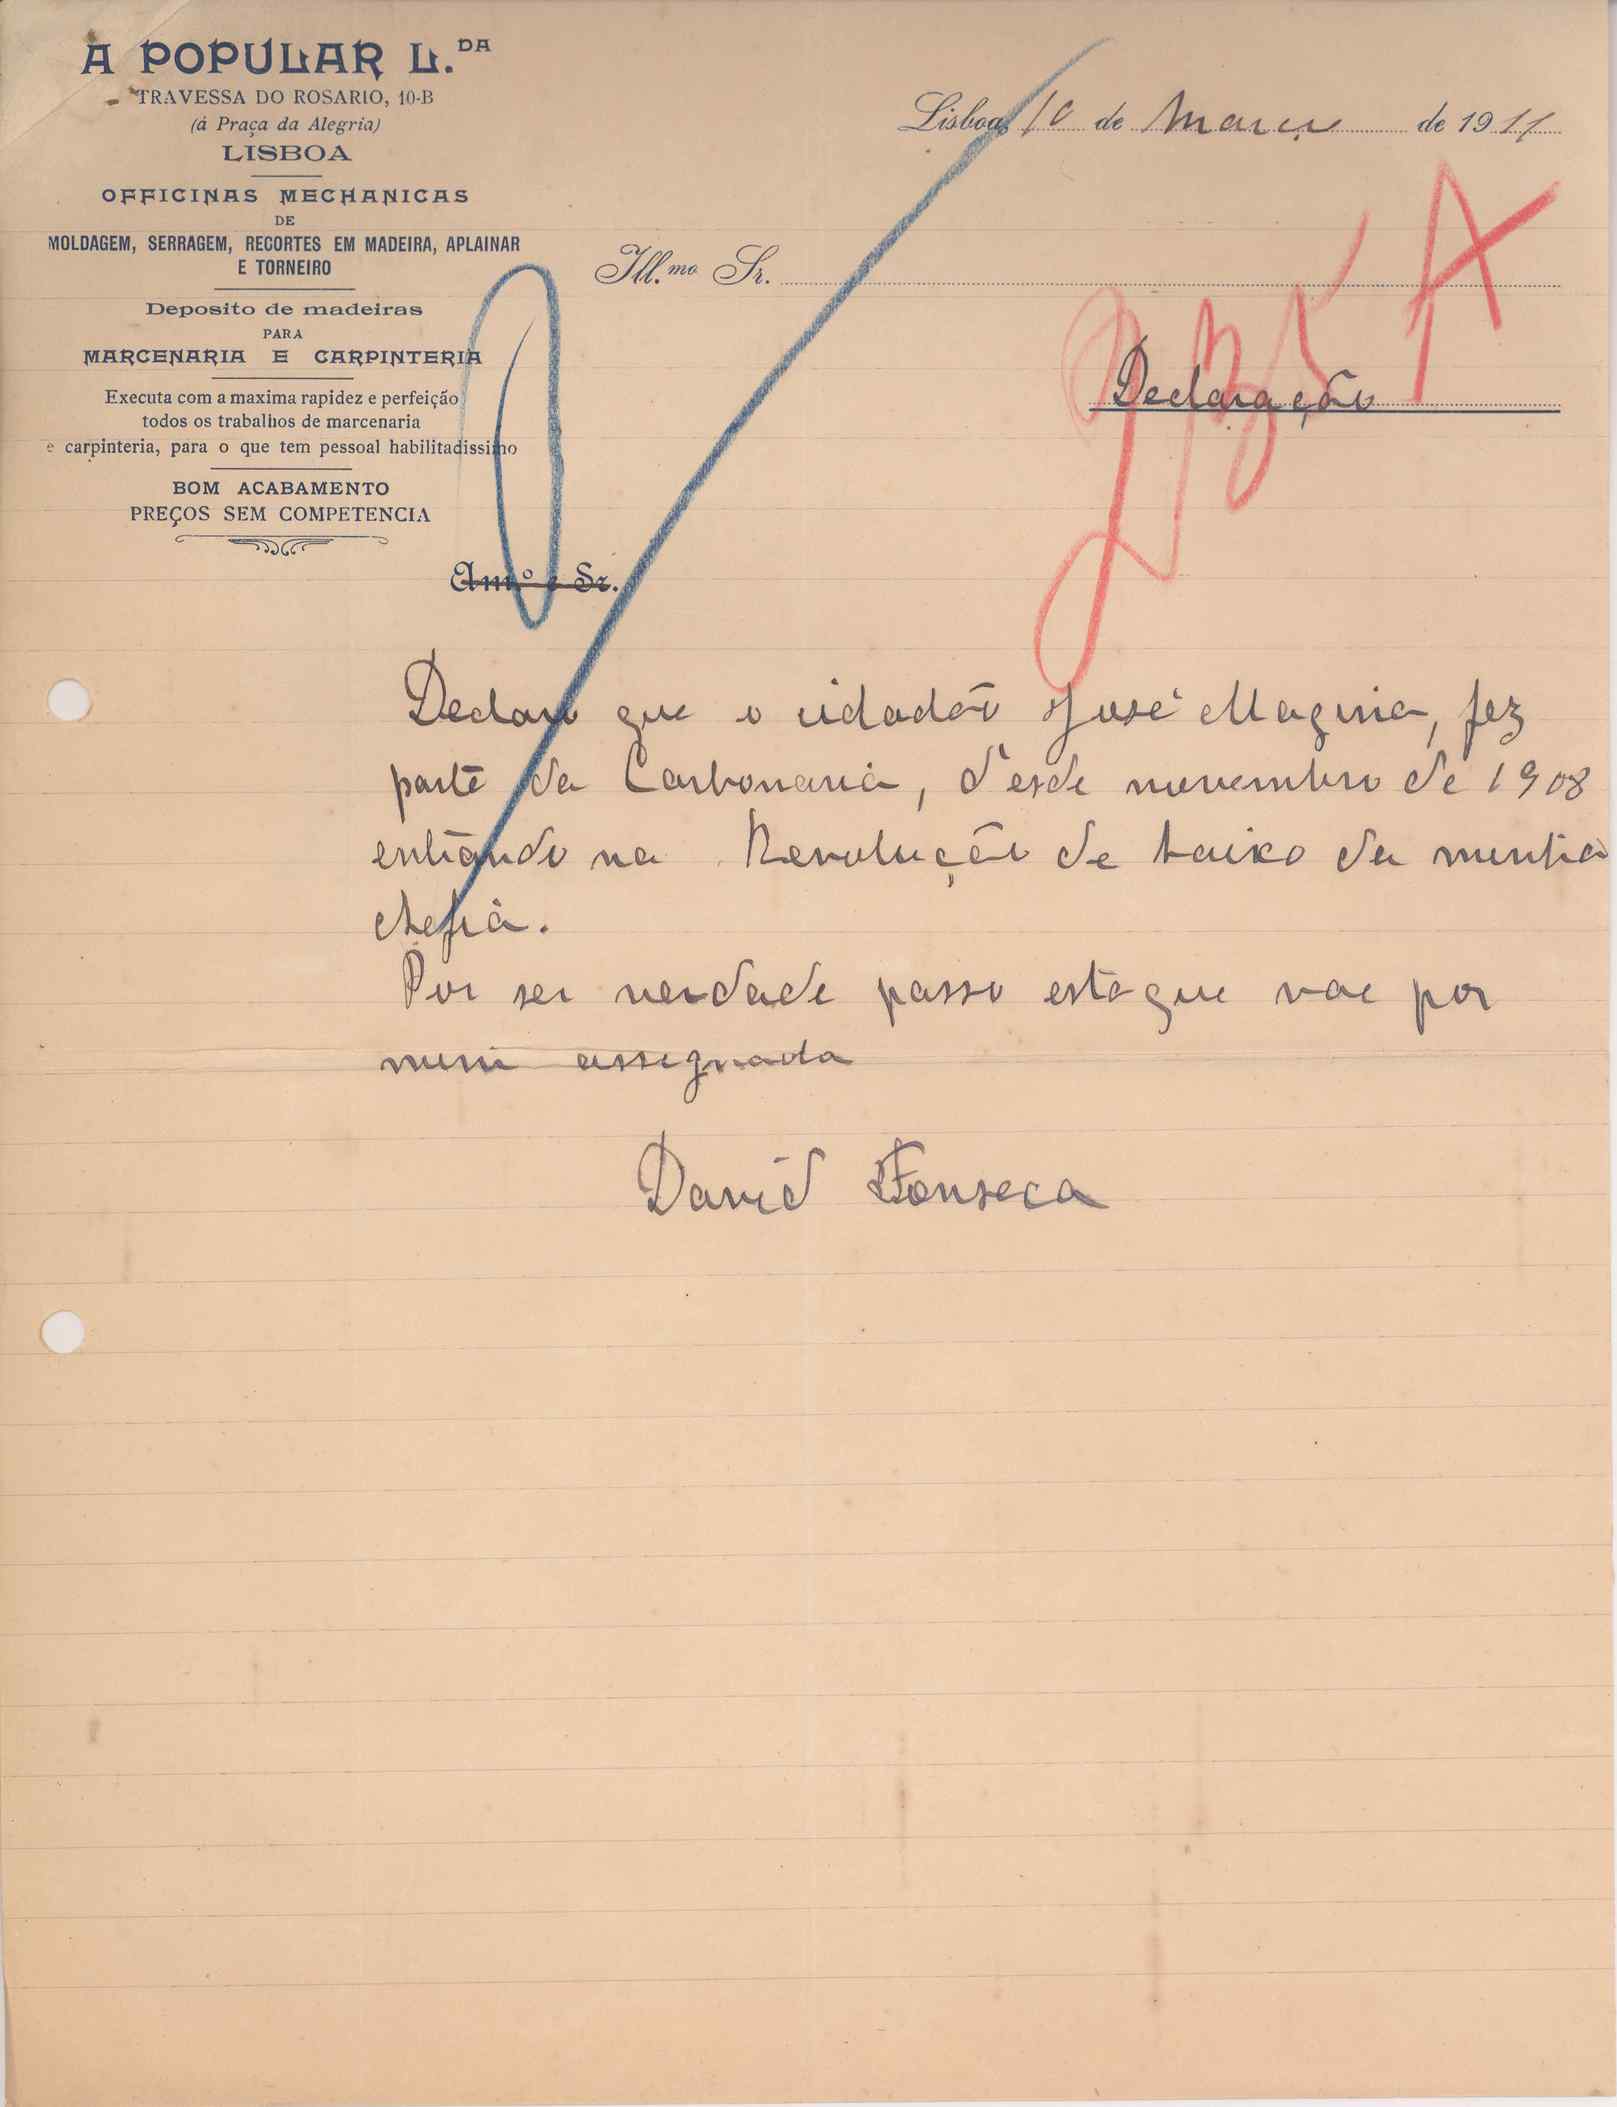 A POPULAR L.DA
TRAVESSA DO ROSARIO, 10-B
(á Praça da Alegria)
LISBOA
OFFICINAS MECHANICAS
DE
MOLDAGEM, SERRAGEM, RECORTES EM MADEIRA, APLAINAR
E TORNEIRO
Deposito de madeiras
PARA
MARCENARIA E CARPINTERIA
Executa com a maxima rapidez e perfeição
todos os trabalhos de marcenaria
e carpinteria, para o que tem pessoal habilitadissimo
BOM ACABAMENTO
PREÇOS SEM COMPETENCIA
Lisboa, 10 de Março de 1911
Ill.mo Sr.
Declaração
Am.o e Sr.
Declaro que o cidadão José Magina, fez
parte da Carbonaria, desde novembro de 1908
entrando na Revolução de baixo da minha
chefia.
Por ser verdade passo esta que vae por
mim assignada
David Fonseca